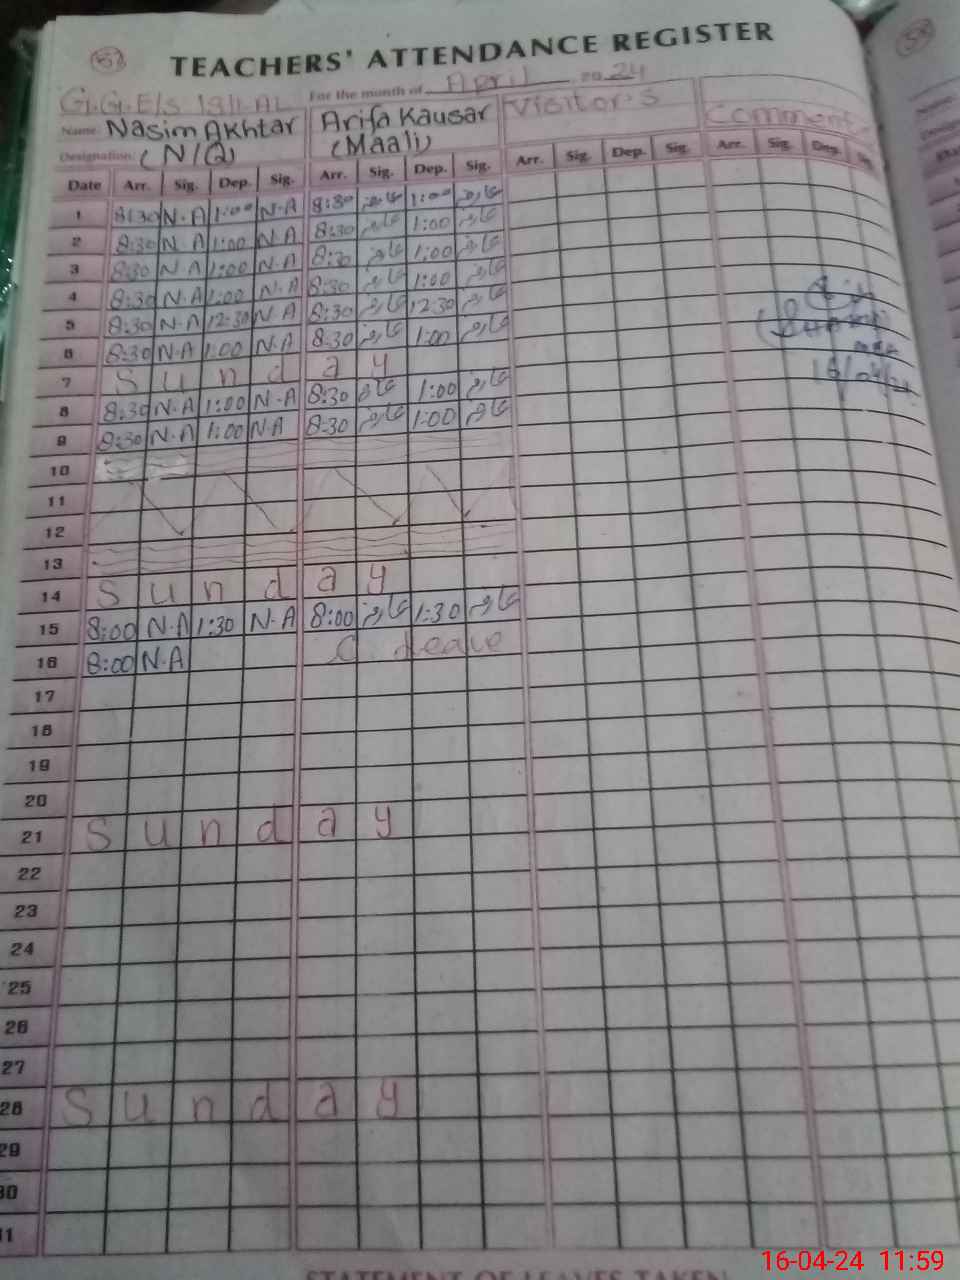 TEACHERS' ATTENDANCE REGISTER
For the month of April 2024
Name: Nasim Akhtar Arifa Kausar Visitor's
Designation: (N/Q) (Maali) Comment
Date Arr. Sig. Dep. Sig. Arr. Sig. Dep. Sig. Arr. Sig. Dep. Sig. Arr. Sig. Dep. Sig.
1 8:30 N.A 1:00 N.A 8:30 1:00
2 8:30 N.A 1:00 N.A 8:30 1:00
3 8:30 N.A 1:00 N.A 8:30 1:00
4 8:30 N.A 1:00 N.A 8:30 1:00
5 8:30 N.A 12:30 N.A 8:30 12:30
6 8:30 N.A 1:00 N.A 8:30 1:00
7 Sunday
8 8:30 N.A 1:00 N.A 8:30 1:00
9 8:30 N.A 1:00 N.A 8:30 1:00
10
11
12
13
14 Sunday
15 8:00 N.A 1:30 N.A 8:00 1:30
16 8:00 N.A C. Leave
17
18
19
20
21 Sunday
22
23
24
25
26
27
28 Sunday
29
30
31
16/04/24
STATEMENT OF LEAVES TAKEN
16-04-24 11:59